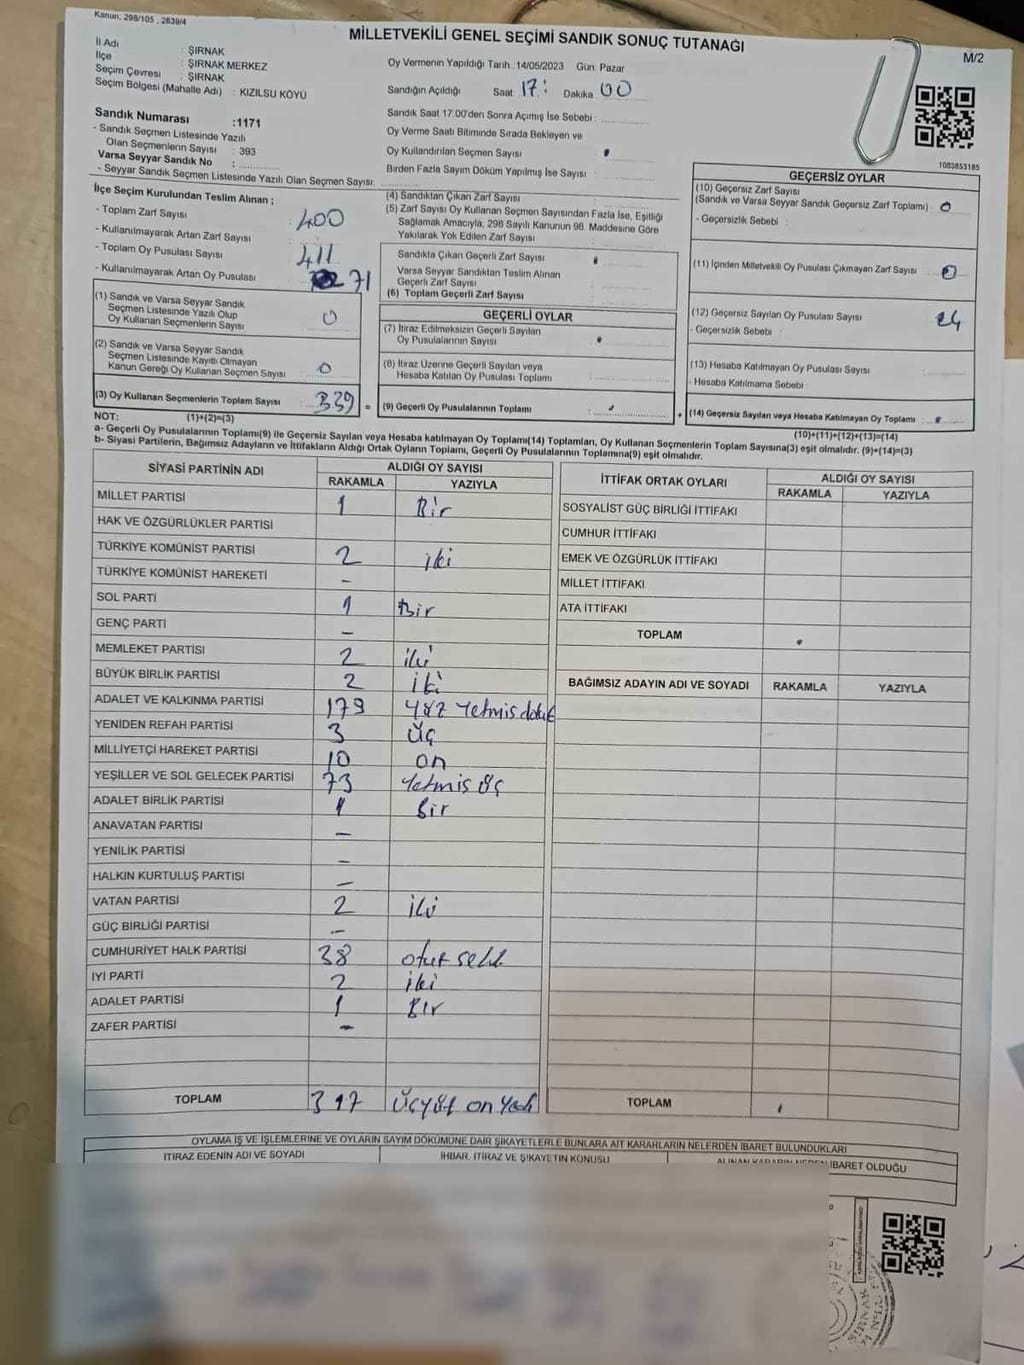 Kanun: 298/105 , 2839/4
MİLLETVEKİLİ GENEL SEÇİMİ SANDIK SONUÇ TUTANAĞI
M/2
İl Adı : ŞIRNAK
İlçe : ŞIRNAK MERKEZ
Seçim Çevresi : ŞIRNAK
Seçim Bölgesi (Mahalle Adı) : KIZILSU KÖYÜ
Sandık Numarası :1171
- Sandık Seçmen Listesinde Yazılı
Olan Seçmenlerin Sayısı : 393
Varsa Seyyar Sandık No :
- Seyyar Sandık Seçmen Listesinde Yazılı Olan Seçmen Sayısı:
Oy Vermenin Yapıldığı Tarih :14/05/2023 Gün: Pazar
Sandığın Açıldığı Saat 17: Dakika 00
Sandık Saat 17.00'den Sonra Açımış İse Sebebi :
Oy Verme Saati Bitiminde Sırada Bekleyen ve
Oy Kullandırılan Seçmen Sayısı :
Birden Fazla Sayım Döküm Yapılmış İse Sayısı :
1083853185
İlçe Seçim Kurulundan Teslim Alınan ;
- Toplam Zarf Sayısı : 400
- Kullanılmayarak Artan Zarf Sayısı :
- Toplam Oy Pusulası Sayısı : 411
- Kullanılmayarak Artan Oy Pusulası : 71
(1) Sandık ve Varsa Seyyar Sandık
Seçmen Listesinde Yazılı Olup
Oy Kullanan Seçmenlerin Sayısı : 0
(2) Sandık ve Varsa Seyyar Sandık
Seçmen Listesinde Kayıtlı Olmayan
Kanun Gereği Oy Kullanan Seçmen Sayısı : 0
(3) Oy Kullanan Seçmenlerin Toplam Sayısı : 339 =
(4) Sandıktan Çıkan Zarf Sayısı :
(5) Zarf Sayısı Oy Kullanan Seçmen Sayısından Fazla İse, Eşitliği
Sağlamak Amacıyla, 298 Sayılı Kanunun 98. Maddesine Göre
Yakılarak Yok Edilen Zarf Sayısı :
Sandıkta Çıkan Geçerli Zarf Sayısı :
Varsa Seyyar Sandıktan Teslim Alınan
Geçerli Zarf Sayısı :
(6) Toplam Geçerli Zarf Sayısı :
GEÇERLİ OYLAR
(7) İtiraz Edilmeksizin Geçerli Sayılan
Oy Pusulalarının Sayısı :
(8) İtiraz Üzerine Geçerli Sayılan veya
Hesaba Katılan Oy Pusulası Toplamı :
(9) Geçerli Oy Pusulalarının Toplamı : +
GEÇERSİZ OYLAR
(10) Geçersiz Zarf Sayısı
(Sandık ve Varsa Seyyar Sandık Geçersiz Zarf Toplamı) : 0
- Geçersizlik Sebebi :
(11) İçinden Milletvekili Oy Pusulası Çıkmayan Zarf Sayısı : 0
(12) Geçersiz Sayılan Oy Pusulası Sayısı : 24
- Geçersizlik Sebebi :
(13) Hesaba Katılmayan Oy Pusulası Sayısı :
- Hesaba Katılmama Sebebi :
(14) Geçersiz Sayılan veya Hesaba Katılmayan Oy Toplamı :
NOT: (1)+(2)=(3)
(10)+(11)+(12)+(13)=(14)
a- Geçerli Oy Pusulalarının Toplamı(9) ile Geçersiz Sayılan veya Hesaba katılmayan Oy Toplamı(14) Toplamları, Oy Kullanan Seçmenlerin Toplam Sayısına(3) eşit olmalıdır. (9)+(14)=(3)
b- Siyasi Partilerin, Bağımsız Adayların ve İttifakların Aldığı Ortak Oyların Toplamı, Geçerli Oy Pusulalarının Toplamına(9) eşit olmalıdır.
SİYASİ PARTİNİN ADI ALDIĞI OY SAYISI
RAKAMLA YAZIYLA
MİLLET PARTİSİ 1 Bir
HAK VE ÖZGÜRLÜKLER PARTİSİ
TÜRKİYE KOMÜNİST PARTİSİ 2 iki
TÜRKİYE KOMÜNİST HAREKETİ -
SOL PARTİ 1 Bir
GENÇ PARTİ -
MEMLEKET PARTİSİ 2 iki
BÜYÜK BİRLİK PARTİSİ 2 iki
ADALET VE KALKINMA PARTİSİ 179 yüz Yetmis dokuz
YENİDEN REFAH PARTİSİ 3 üç
MİLLİYETÇİ HAREKET PARTİSİ 10 on
YEŞİLLER VE SOL GELECEK PARTİSİ 73 Yetmis üç
ADALET BİRLİK PARTİSİ 1 Bir
ANAVATAN PARTİSİ -
YENİLİK PARTİSİ -
HALKIN KURTULUŞ PARTİSİ -
VATAN PARTİSİ 2 iki
GÜÇ BİRLİĞİ PARTİSİ -
CUMHURİYET HALK PARTİSİ 38 otuz sekiz
İYİ PARTİ 2 iki
ADALET PARTİSİ 1 Bir
ZAFER PARTİSİ -
TOPLAM 317 üçyüz on yedi
İTTİFAK ORTAK OYLARI ALDIĞI OY SAYISI
RAKAMLA YAZIYLA
SOSYALİST GÜÇ BİRLİĞİ İTTİFAKI
CUMHUR İTTİFAKI
EMEK VE ÖZGÜRLÜK İTTİFAKI
MİLLET İTTİFAKI
ATA İTTİFAKI
TOPLAM
BAĞIMSIZ ADAYIN ADI VE SOYADI RAKAMLA YAZIYLA
TOPLAM
OYLAMA İŞ VE İŞLEMLERİNE VE OYLARIN SAYIM DÖKÜMÜNE DAİR ŞİKAYETLERLE BUNLARA AİT KARARLARIN NELERDEN İBARET BULUNDUKLARI
İTİRAZ EDENİN ADI VE SOYADI İHBAR, İTİRAZ VE ŞİKAYETİN KONUSU ALINAN KARARIN NEDEN İBARET OLDUĞU
ŞIRNAK